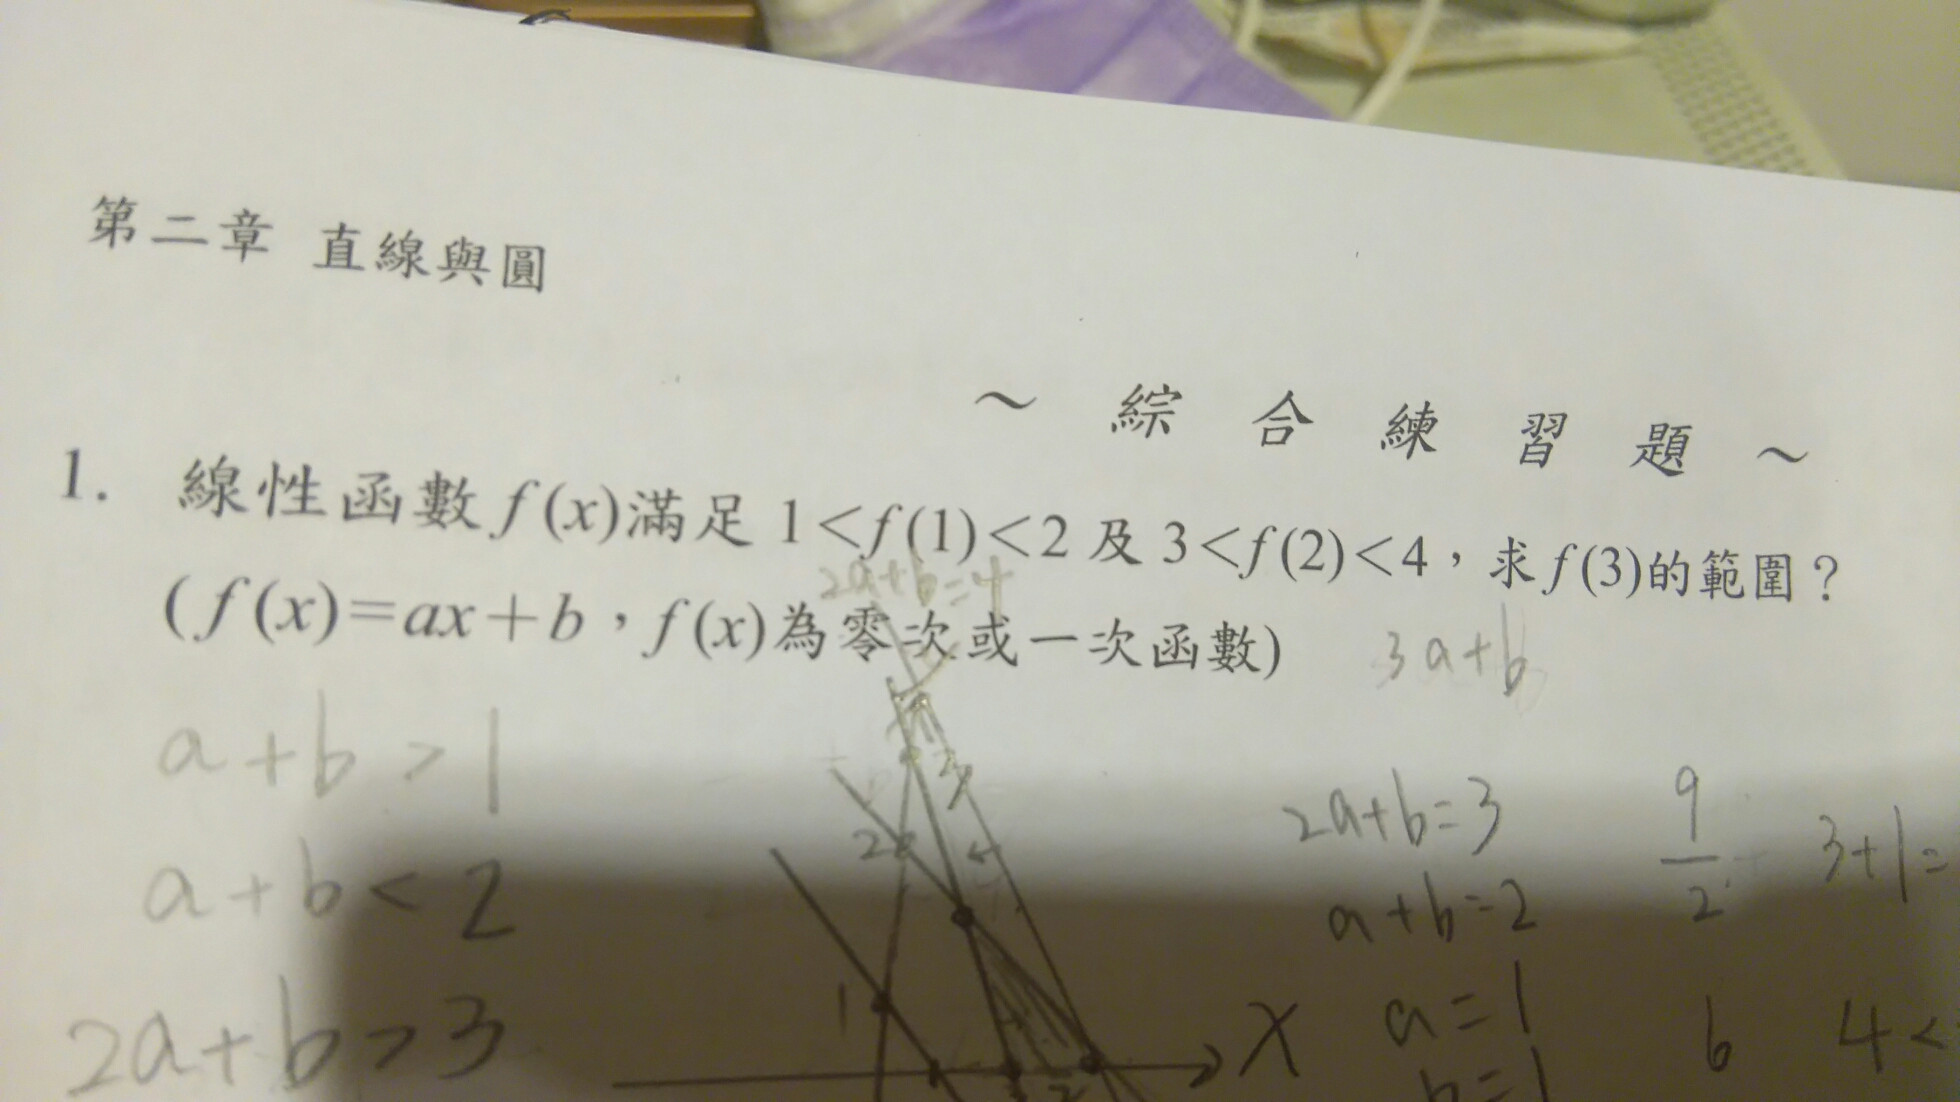 第二章 直線與圓
～ 綜合練習題 ～
1. 線性函數f(x)滿足 1<f(1)<2 及 3<f(2)<4，求f(3)的範圍？
2a+b=4
(f(x)=ax+b，f(x)為零次或一次函數)
3a+b
a+b>1
2a+b=3
9/2
3+1=
a+b<2
2
a+b=2
2a+b>3
1
X
a=1
6
4<
b=1